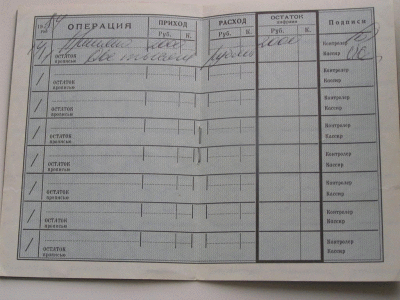 ОПЕРАЦИЯ ПРИХОД РАСХОД ОСТАТОК Подписи
цифрами
Руб. К. Руб. К. Руб. К.
Принято Контролер
ОСТАТОК прописью Две тысячи рублей Кассир
Контролер
ОСТАТОК прописью Кассир
Контролер
ОСТАТОК прописью Кассир
Контролер
ОСТАТОК прописью Кассир
Контролер
ОСТАТОК прописью Кассир
Контролер
ОСТАТОК прописью Кассир
Контролер
ОСТАТОК прописью Кассир